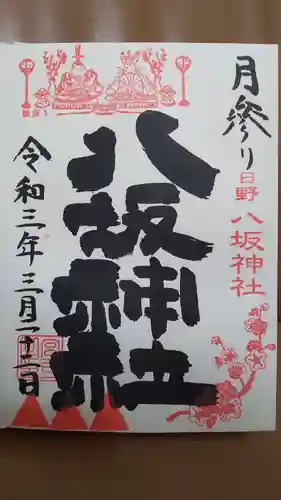 月参り
日野
八坂神社
八坂神社
令和三年三月